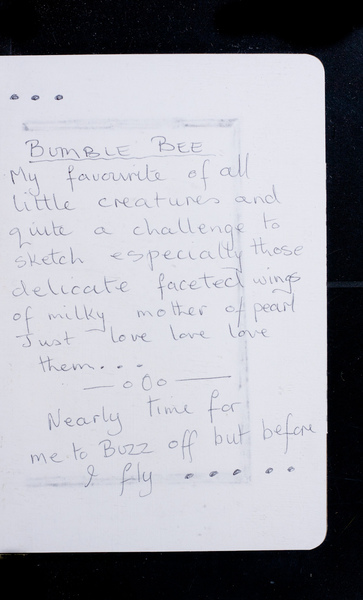 • • •
BUMBLE BEE
My favourite of all
little creatures and
quite a challenge to
sketch especialty those
delicate faceted wings
of milky mother of pearl
Just love love love
them...
— o O o —
Nearly time for
me to BUZZ off but before
I fly • • • • •